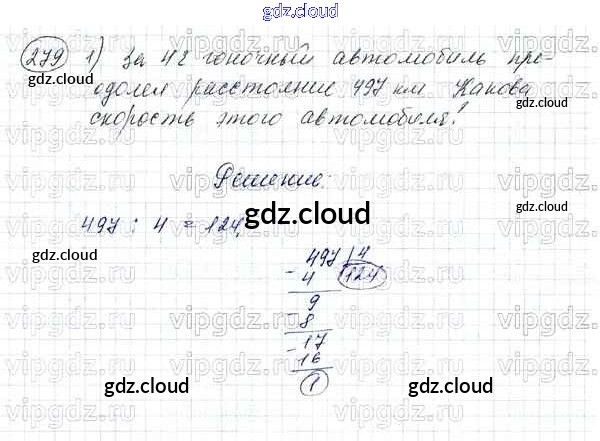 gdz.cloud
279 1) За 4 ч гоночный автомобиль пре-
gdz.cloud
одолел расстояние 497 км. Какова
gdz.cloud
скорость этого автомобиля?
Решение:
497 : 4 = 124
gdz.cloud
497 | 4
- 4 124
9
- 8
17
- 16
1
gdz.cloud
gdz.cloud
vipgdz.ru vipgdz.ru vipgdz.ru vipgdz.ru